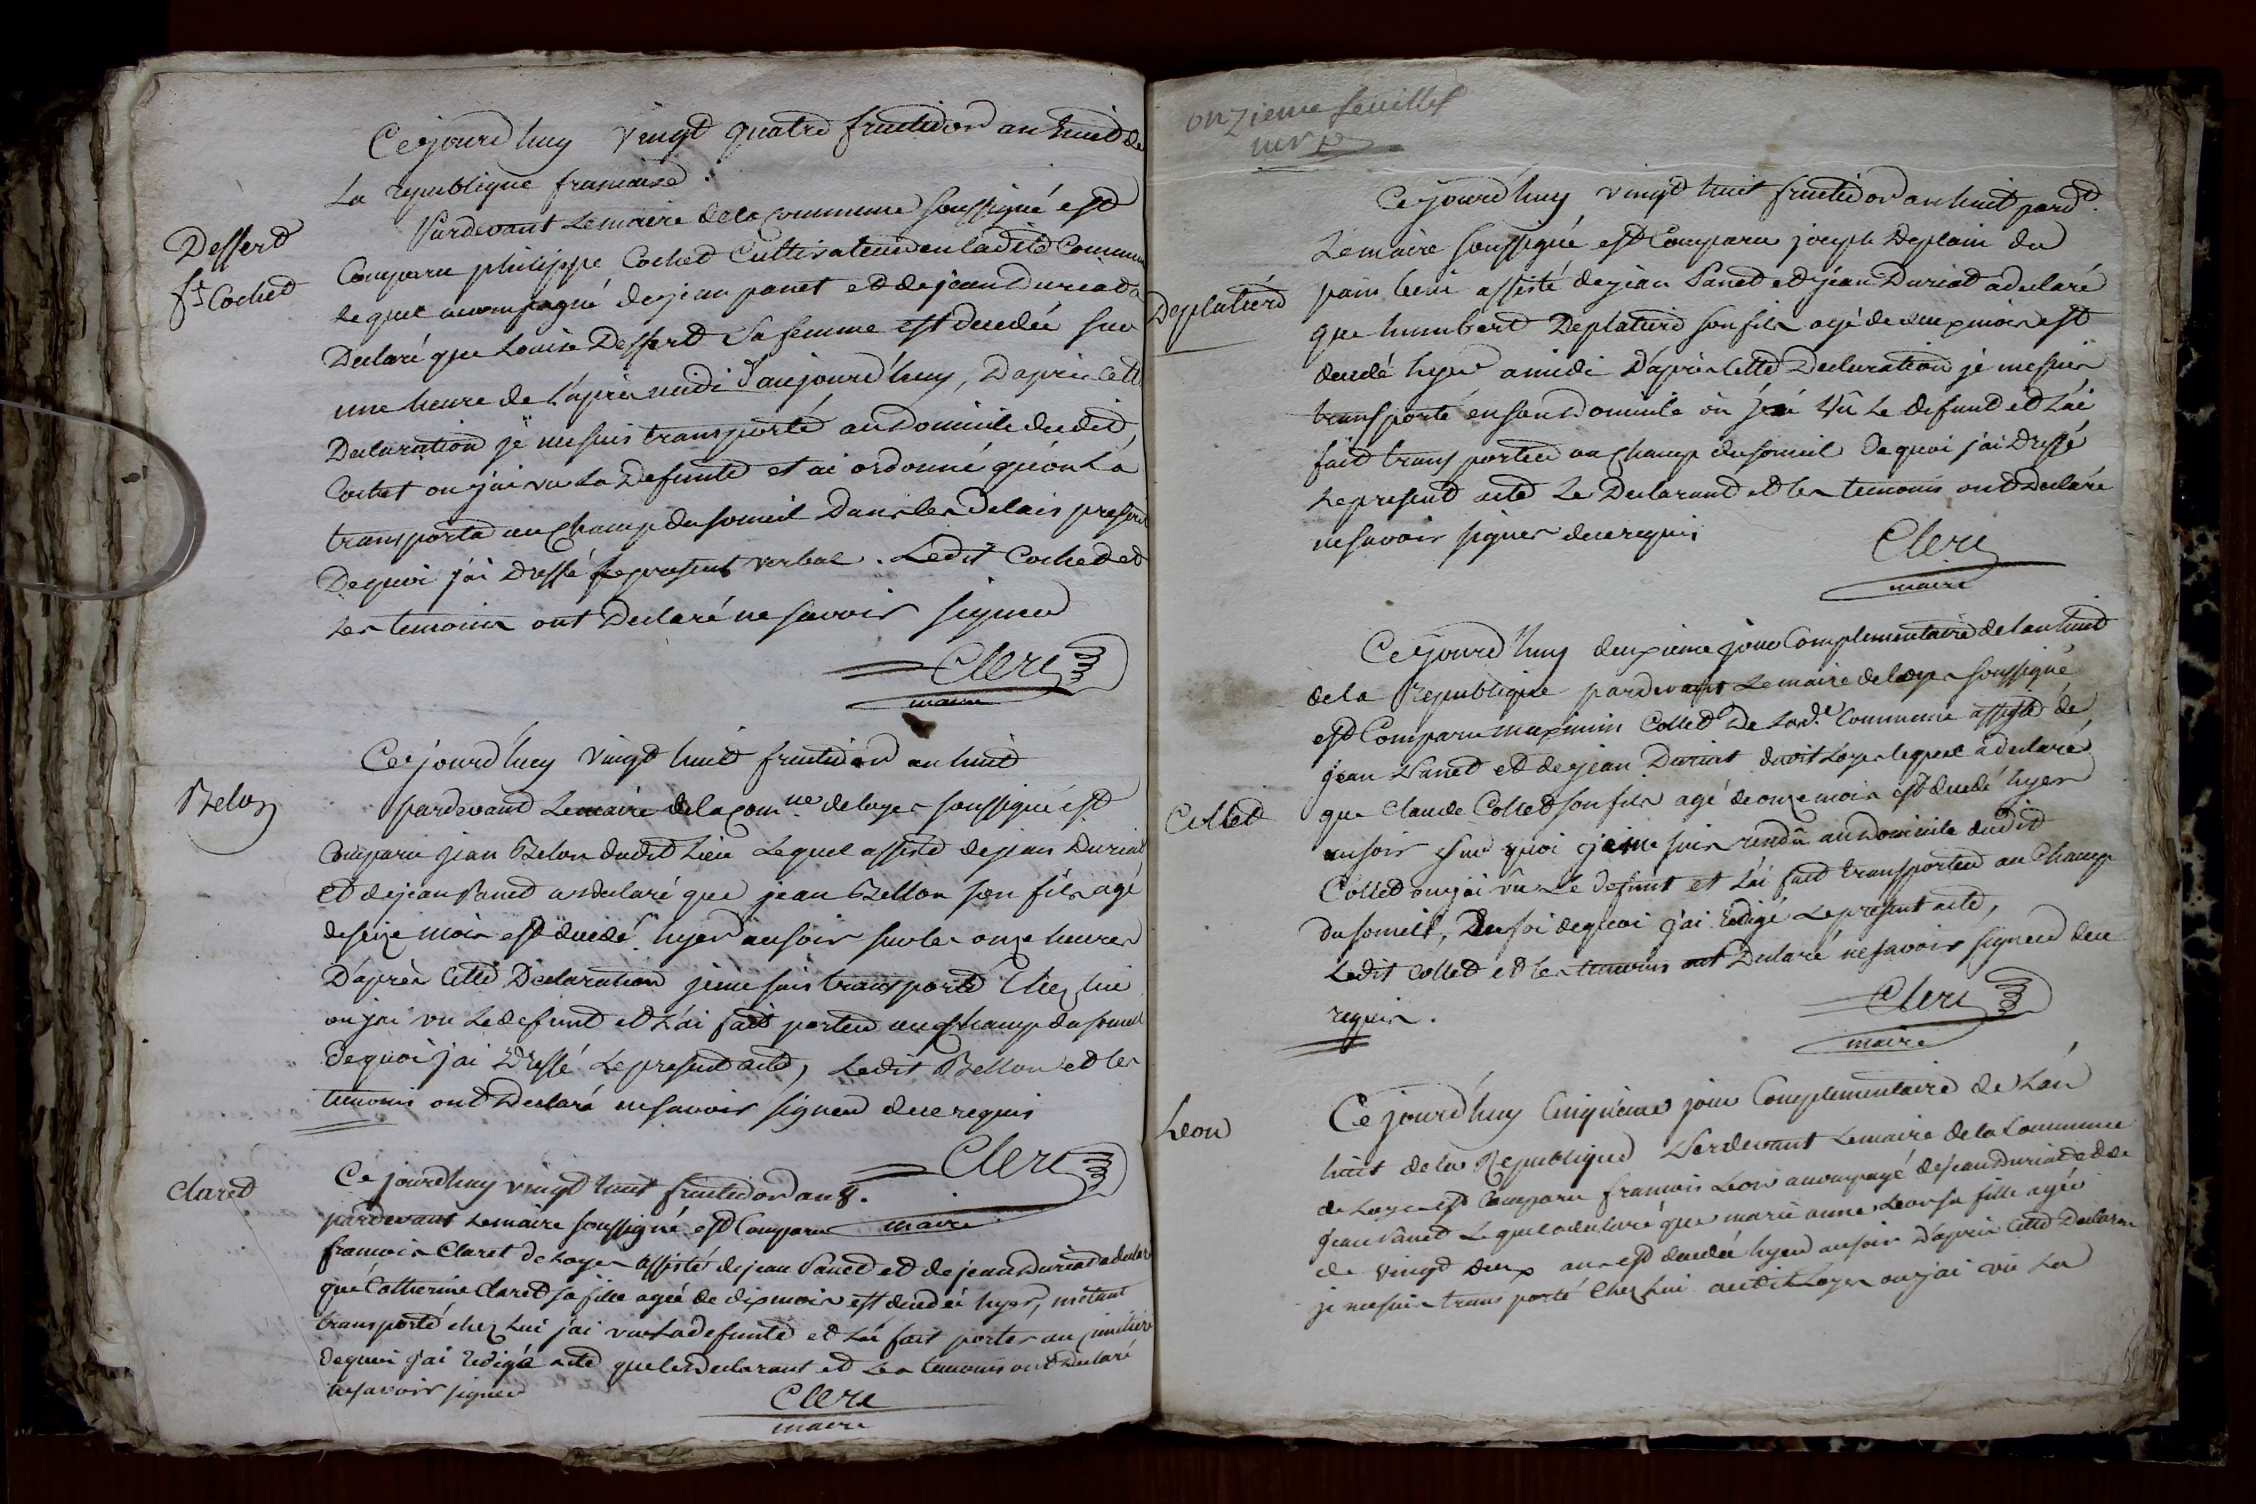 Ce jourd'huy vingt quatre fructidor an huit de
La republique francaise.
Pardevant Lemaire dela commune soussigné est
Dessert
fe Cochet
Comparu philippe Cochet Cultivateur en ladite Commune
lequel accompagné de jean panet et de jean Duriat a
Declaré que Louise Dessert Sa femme est decedée sur
une heure de l'après midi d'aujourd'huy, D'après cette
Declaration je me suis transporté au Domicile dudit
Cochet ou j'ai vu La Defunte et ai ordonné qu'on L'a
transporta au Champ du someil Dans les Delais prescrit
Dequoi j'ai Dressé Le present verbal. Ledit Cochet et
Les temoins ont Declaré ne savoir signer
Clerc
maire
Ce jourd'huy vingt huit fructidor an huit
Belon
pardevant Lemaire dela comne. de loyes soussigné est
Comparu jean Belon dudit Lieu Lequel assisté de jean Duriat
et de jean Panet a declaré que jean Bellon son fils agé
de seize mois est decedé hyer au soir sur les onze heures
D'après cette Declaration je me suis transporté Chez lui
ou j'ai vu Le defunt et L'ai fait porter au Champ du someil
Dequoi j'ai Dressé Le present acte, Ledit Bellon et les
temoins ont Declaré ne savoir signer de ce requis
Clerc
maire
Claret
Ce jourd'huy vingt huit fructidor an 8.
pardevant Lemaire soussigné est Comparu
francois Claret de Loyes assisté de jean Panet et de jean Duriat a declaré
que Catherine Claret sa fille agée de dix mois est decedée hyer, m'etant
transporté chez Lui j'ai vu La defunte et L'ai fait porter au cimetière
Dequoi j'ai redigé acte que les declarant et Les temoins ont Declaré
ne savoir signer
Clerc
maire
onzieme feuillet
Ce jourd'huy vingt huit fructidor an huit pardt.
Lemaire soussigné est Comparu joseph Deplain du
Deplatierd
assisté de jean Panet et jean Duriat a declaré
que humbert Deplaturd son fils agé de deux mois est
decedé hyer a midi D'après Cette Declaration je me suis
transporté en son Domicile où j'ai Vû Le defunt et L'ai
fait transporter au Champ du someil Dequoi j'ai Dressé
Le present acte Le Declarant et les temoins ont Declaré
ne savoir signer de ce requis
Clerc
maire
Ce jourd'huy deuxieme jour Complementaire de l'an huit
dela Republique pardevant Lemaire de loyes soussigné
est Comparu maximin Collet De Lade. Commune assisté de
jean Panet et de jean Duriat dudit Loyes lequel a declaré
Collet
que Claude Collet son fils agé de onze mois est decedé hyer
au soir sur quoi je me suis rendû au Domicile dudit
Collet ou j'ai vû Le defunt et L'ai fait transporter au Champ
du someil, En foi dequoi j'ai redigé Le present acte,
Ledit Collet et les temoins ont Declaré ne savoir signer de ce
requis.
Clerc
maire
Leon
Ce jourd'huy Cinquieme jour Complementaire de L'an
huit dela Republique Pardevant Lemaire dela Commune
de Loyes est Comparu francois Leon accompagné de jean Duriat et de
jean Panet Lequel a declaré que marie anne Leon sa fille agée
de vingt deux ans est decedée hyer au soir D'après Cette Declaraon
je me suis transporté Chez Lui audit Loyes ou j'ai vu La